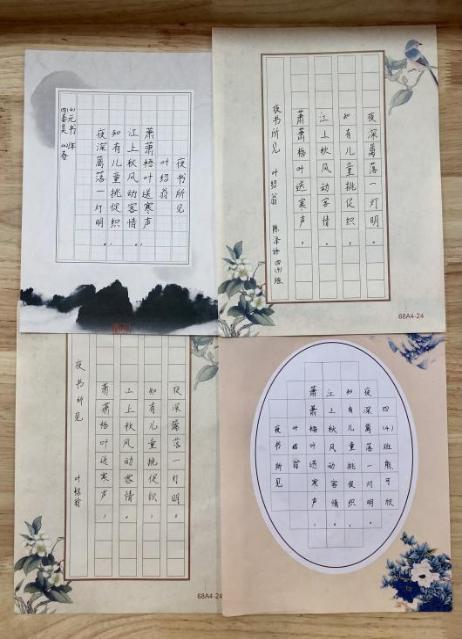 夜书所见
叶绍翁
萧萧梧叶送寒声,
江上秋风动客情。
知有儿童挑促织,
夜深篱落一灯明。
夜书所见 叶绍翁
萧萧梧叶送寒声,
江上秋风动客情。
知有儿童挑促织,
夜深篱落一灯明。
68A4-24
夜书所见 叶绍翁
萧萧梧叶送寒声,
江上秋风动客情。
知有儿童挑促织,
夜深篱落一灯明。
68A4-24
夜书所见
叶绍翁
萧萧梧叶送寒声,
江上秋风动客情。
知有儿童挑促织,
夜深篱落一灯明。
四(4)班